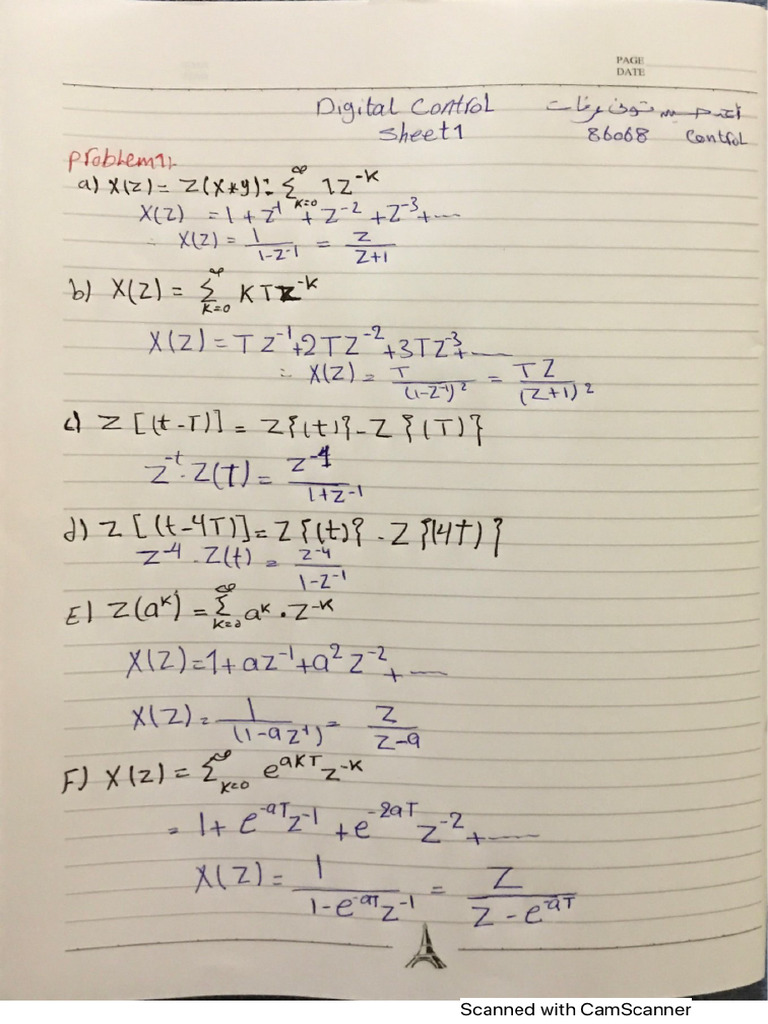 PAGE
DATE
Digital Control
Sheet1
86068 Control
Problem1:-
a) X(z) = Z(x*y) = ∑_{K=0}^{∞} 1z^{-K}
X(z) = 1 + z^{-1} + z^{-2} + z^{-3} + ....
∴ X(z) = 1/(1-z^{-1}) = z/(z+1)
b) X(z) = ∑_{K=0}^{∞} KTz^{-K}
X(z) = Tz^{-1} + 2Tz^{-2} + 3Tz^{-3} + ....
∴ X(z) = T/(1-z^{-1})^2 = TZ/(z+1)^2
c) Z[(t-T)] = Z{(t)} - Z{(T)}
z^{-t} . Z(t) = z^{-1}/(1+z^{-1})
d) Z[(t-4T)] = Z{(t)} - Z{(4t)}
z^{-4} . Z(t) = z^{-4}/(1-z^{-1})
E) Z(a^k) = ∑_{K=0}^{∞} a^k . z^{-K}
X(z) = 1 + az^{-1} + a^2 z^{-2} + ....
X(z) = 1/(1-az^{-1}) = z/(z-a)
F) X(z) = ∑_{K=0}^{∞} e^{aKT} z^{-K}
= 1 + e^{-aT} z^{-1} + e^{-2aT} z^{-2} + ....
X(z) = 1/(1-e^{-aT} z^{-1}) = z/(z-e^{-aT})
Scanned with CamScanner